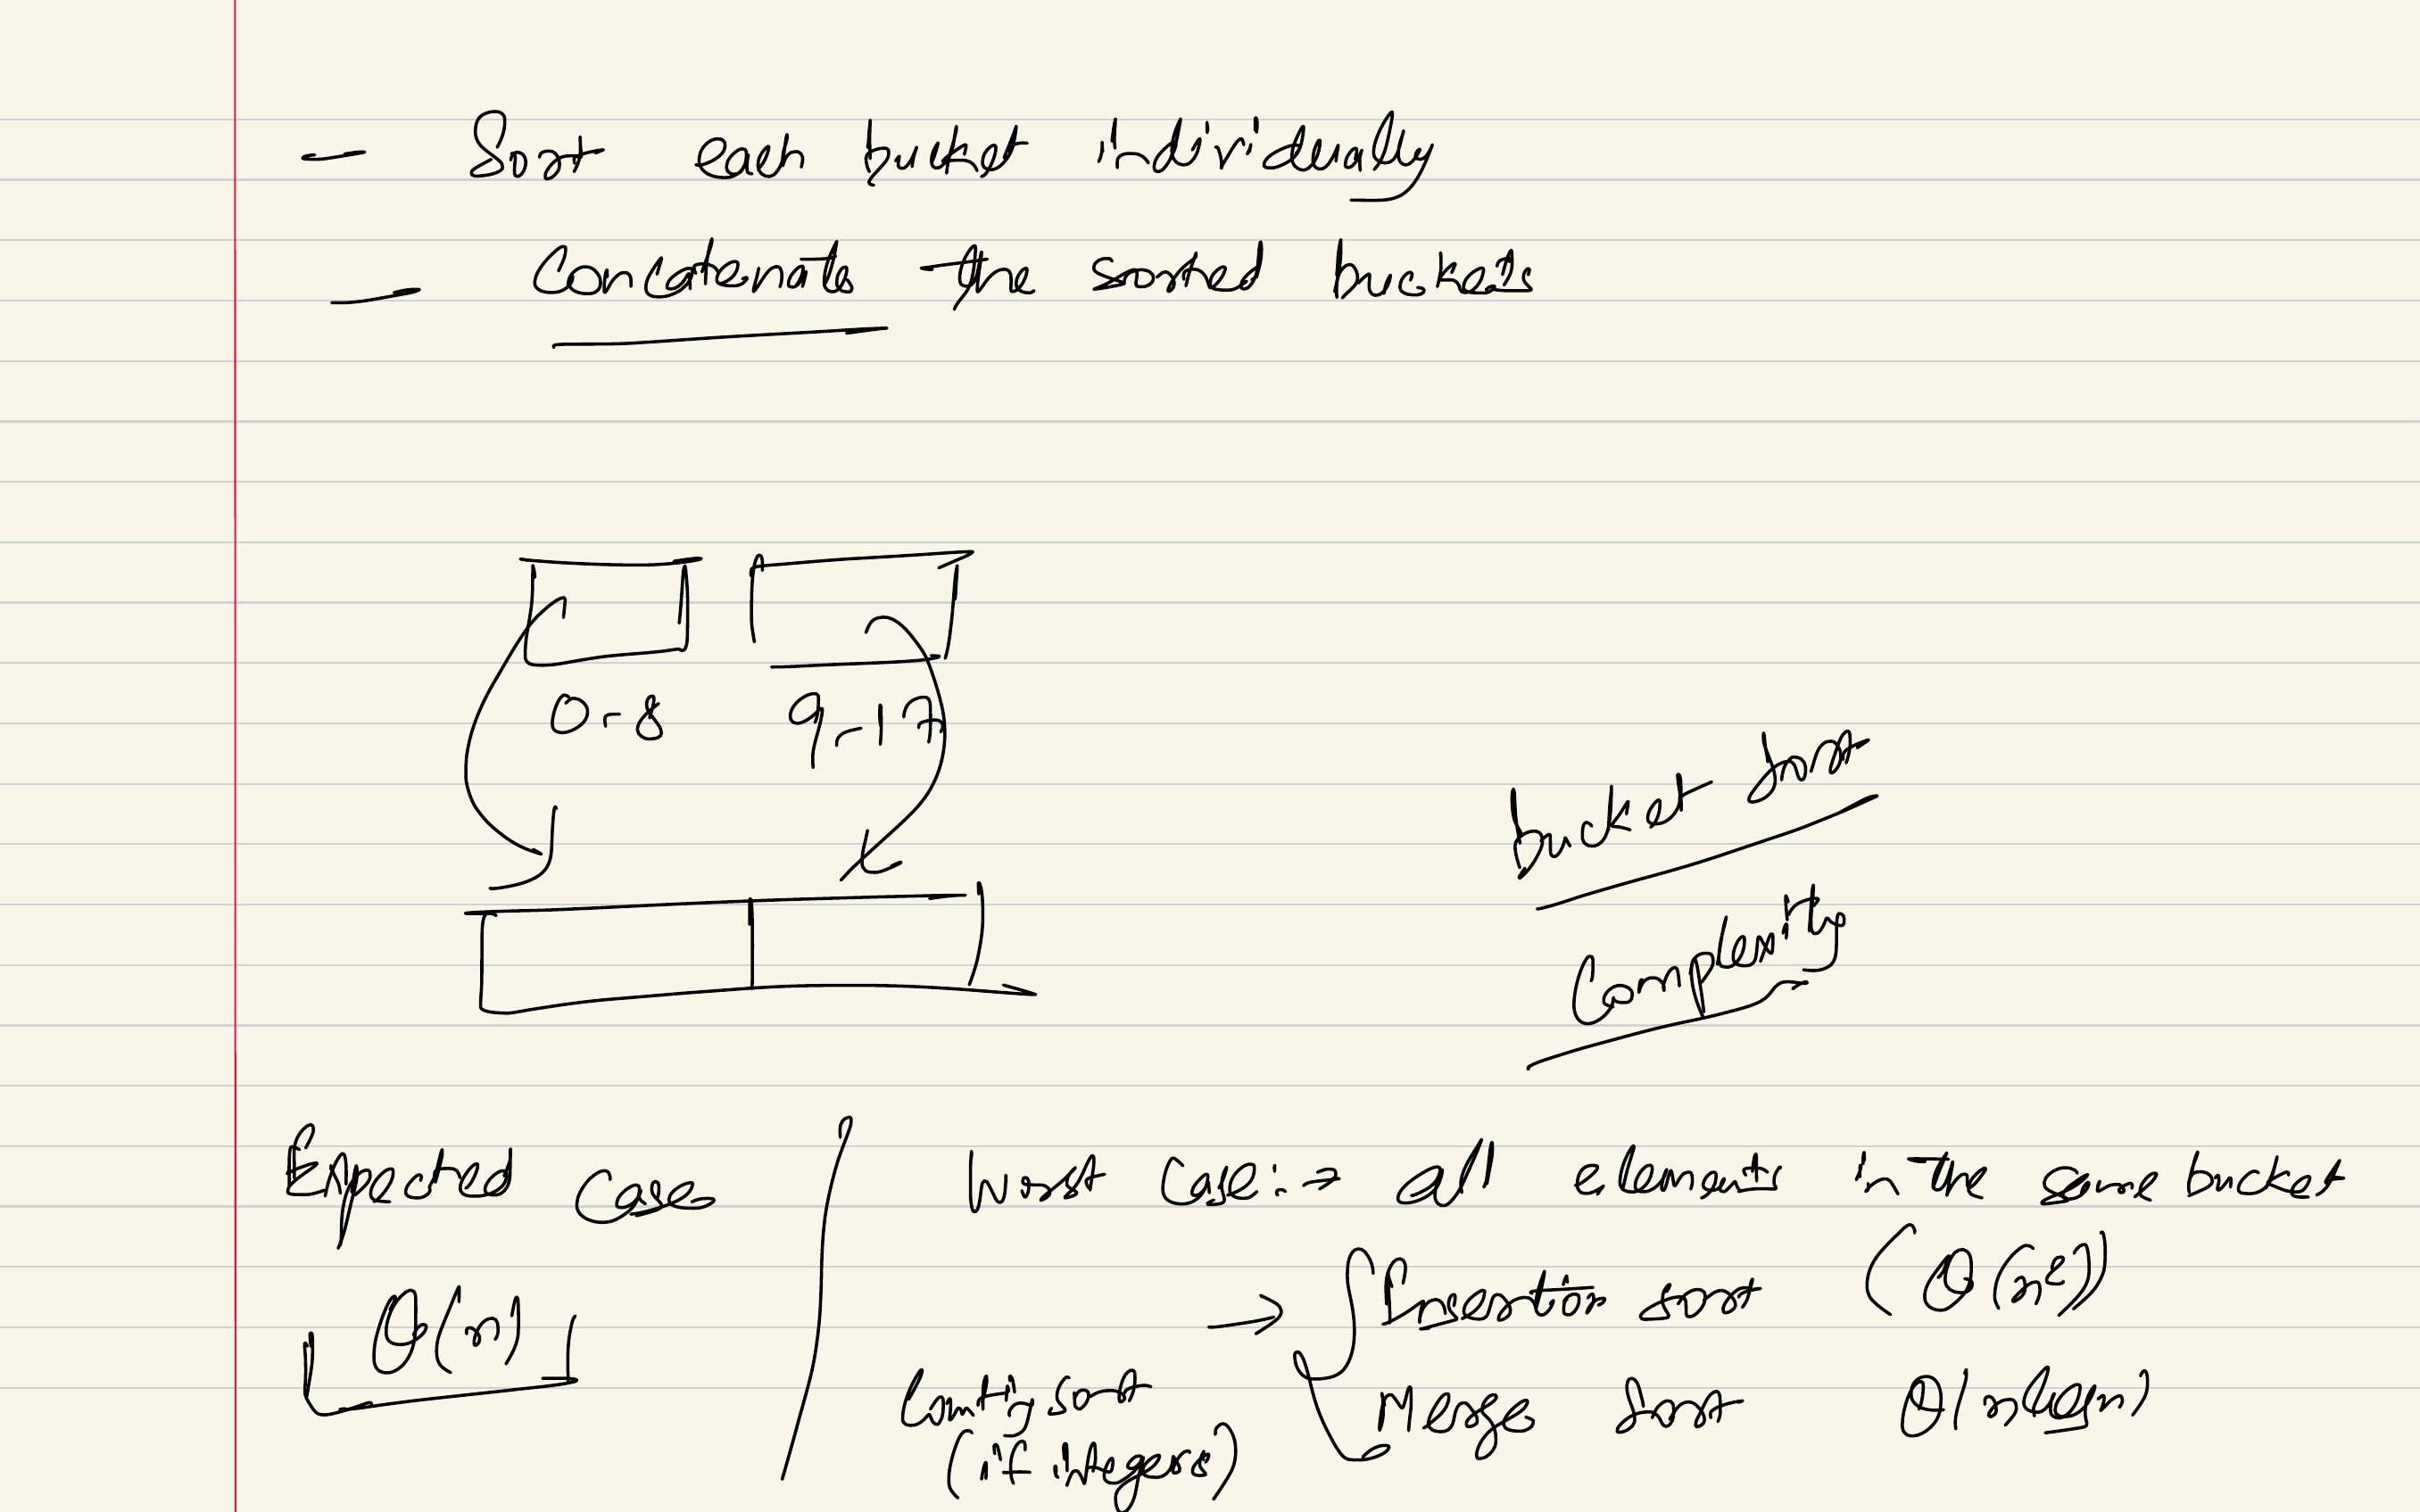 — Sort each bucket individually
— Concatenate the sorted buckets
0-8 9-17
bucket sort
Complexity
Expected Case
θ(n)
Worst Case :→ all elements in the same bucket
→ Insertion sort (θ(n²))
Merge Sort θ(n log n)
Counting sort
(if integers)